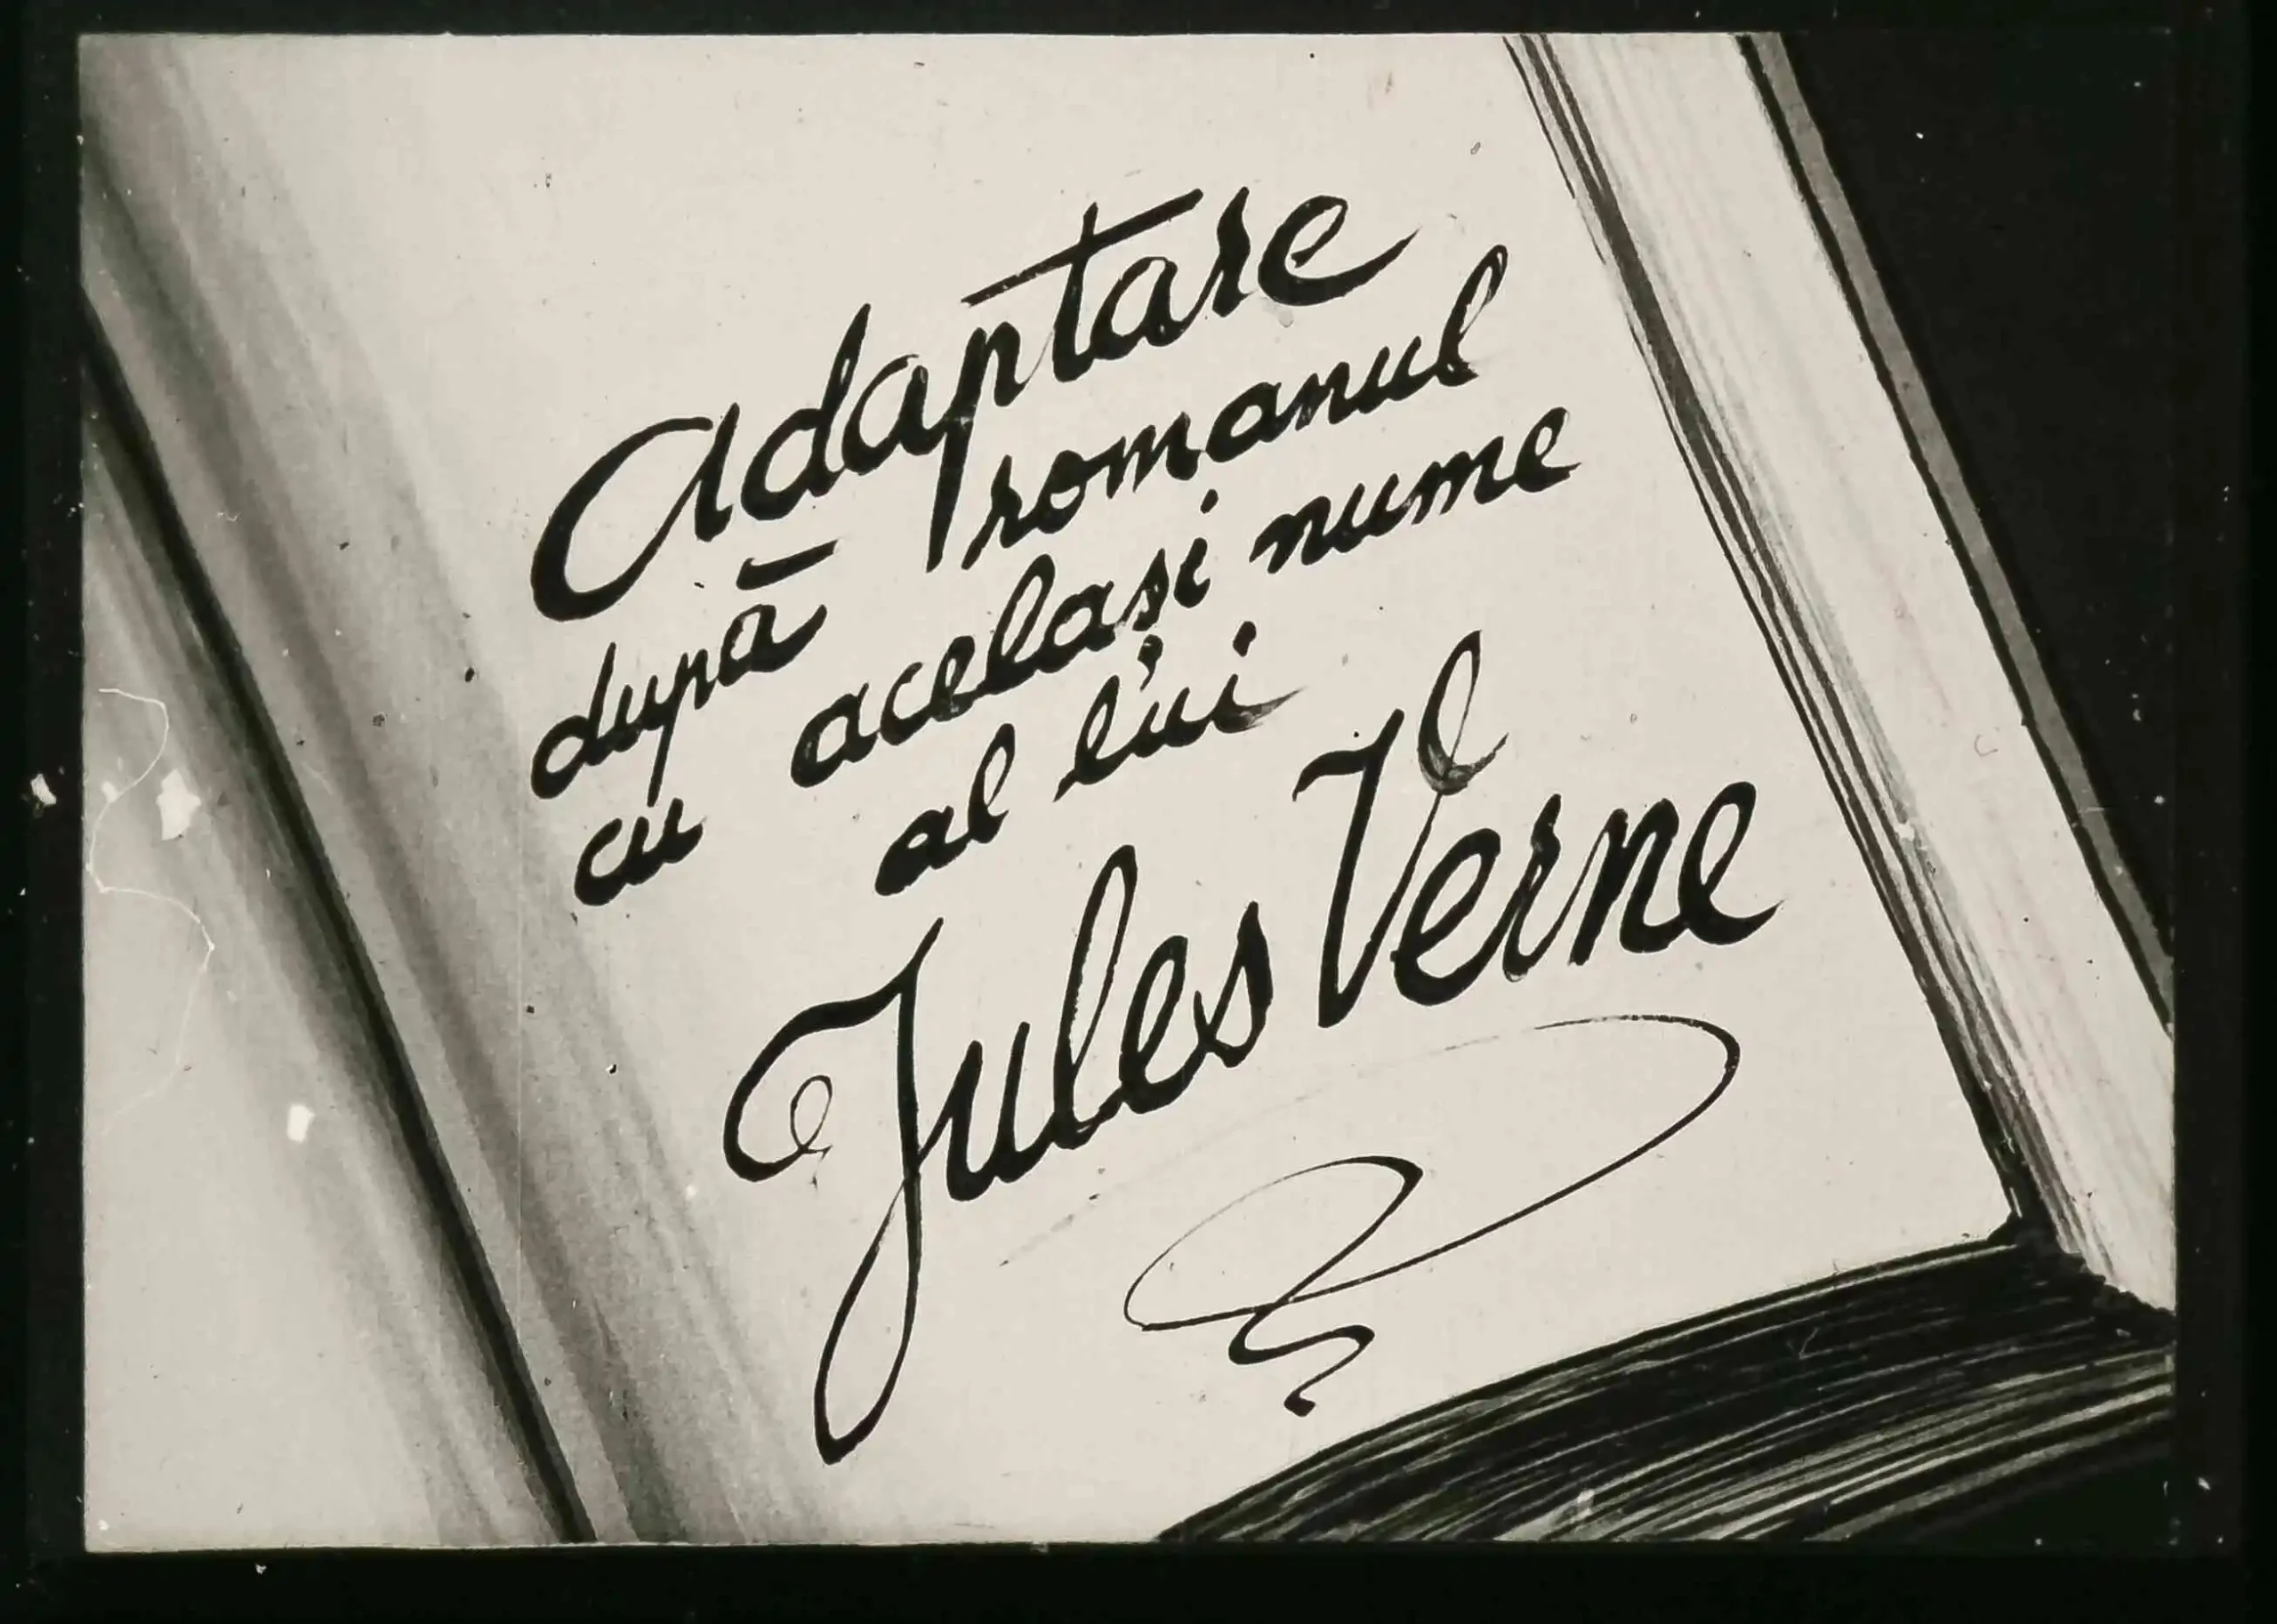 Adaptare
după romanul
cu același nume
al lui
Jules Verne